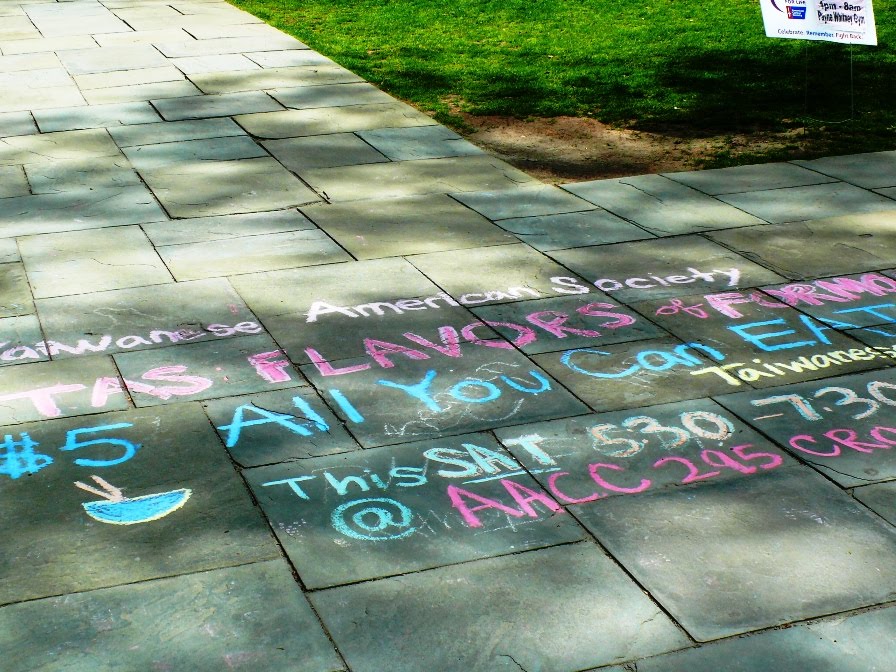 1pm - 8am
Payne Whitney Gym
Celebrate. Remember. Fight Back.
Taiwanese American Society
TAS FLAVORS of FORMO
$5 All You Can EAT
Taiwanese
This SAT 5:30 - 7:30
@ AACC 295 CRO